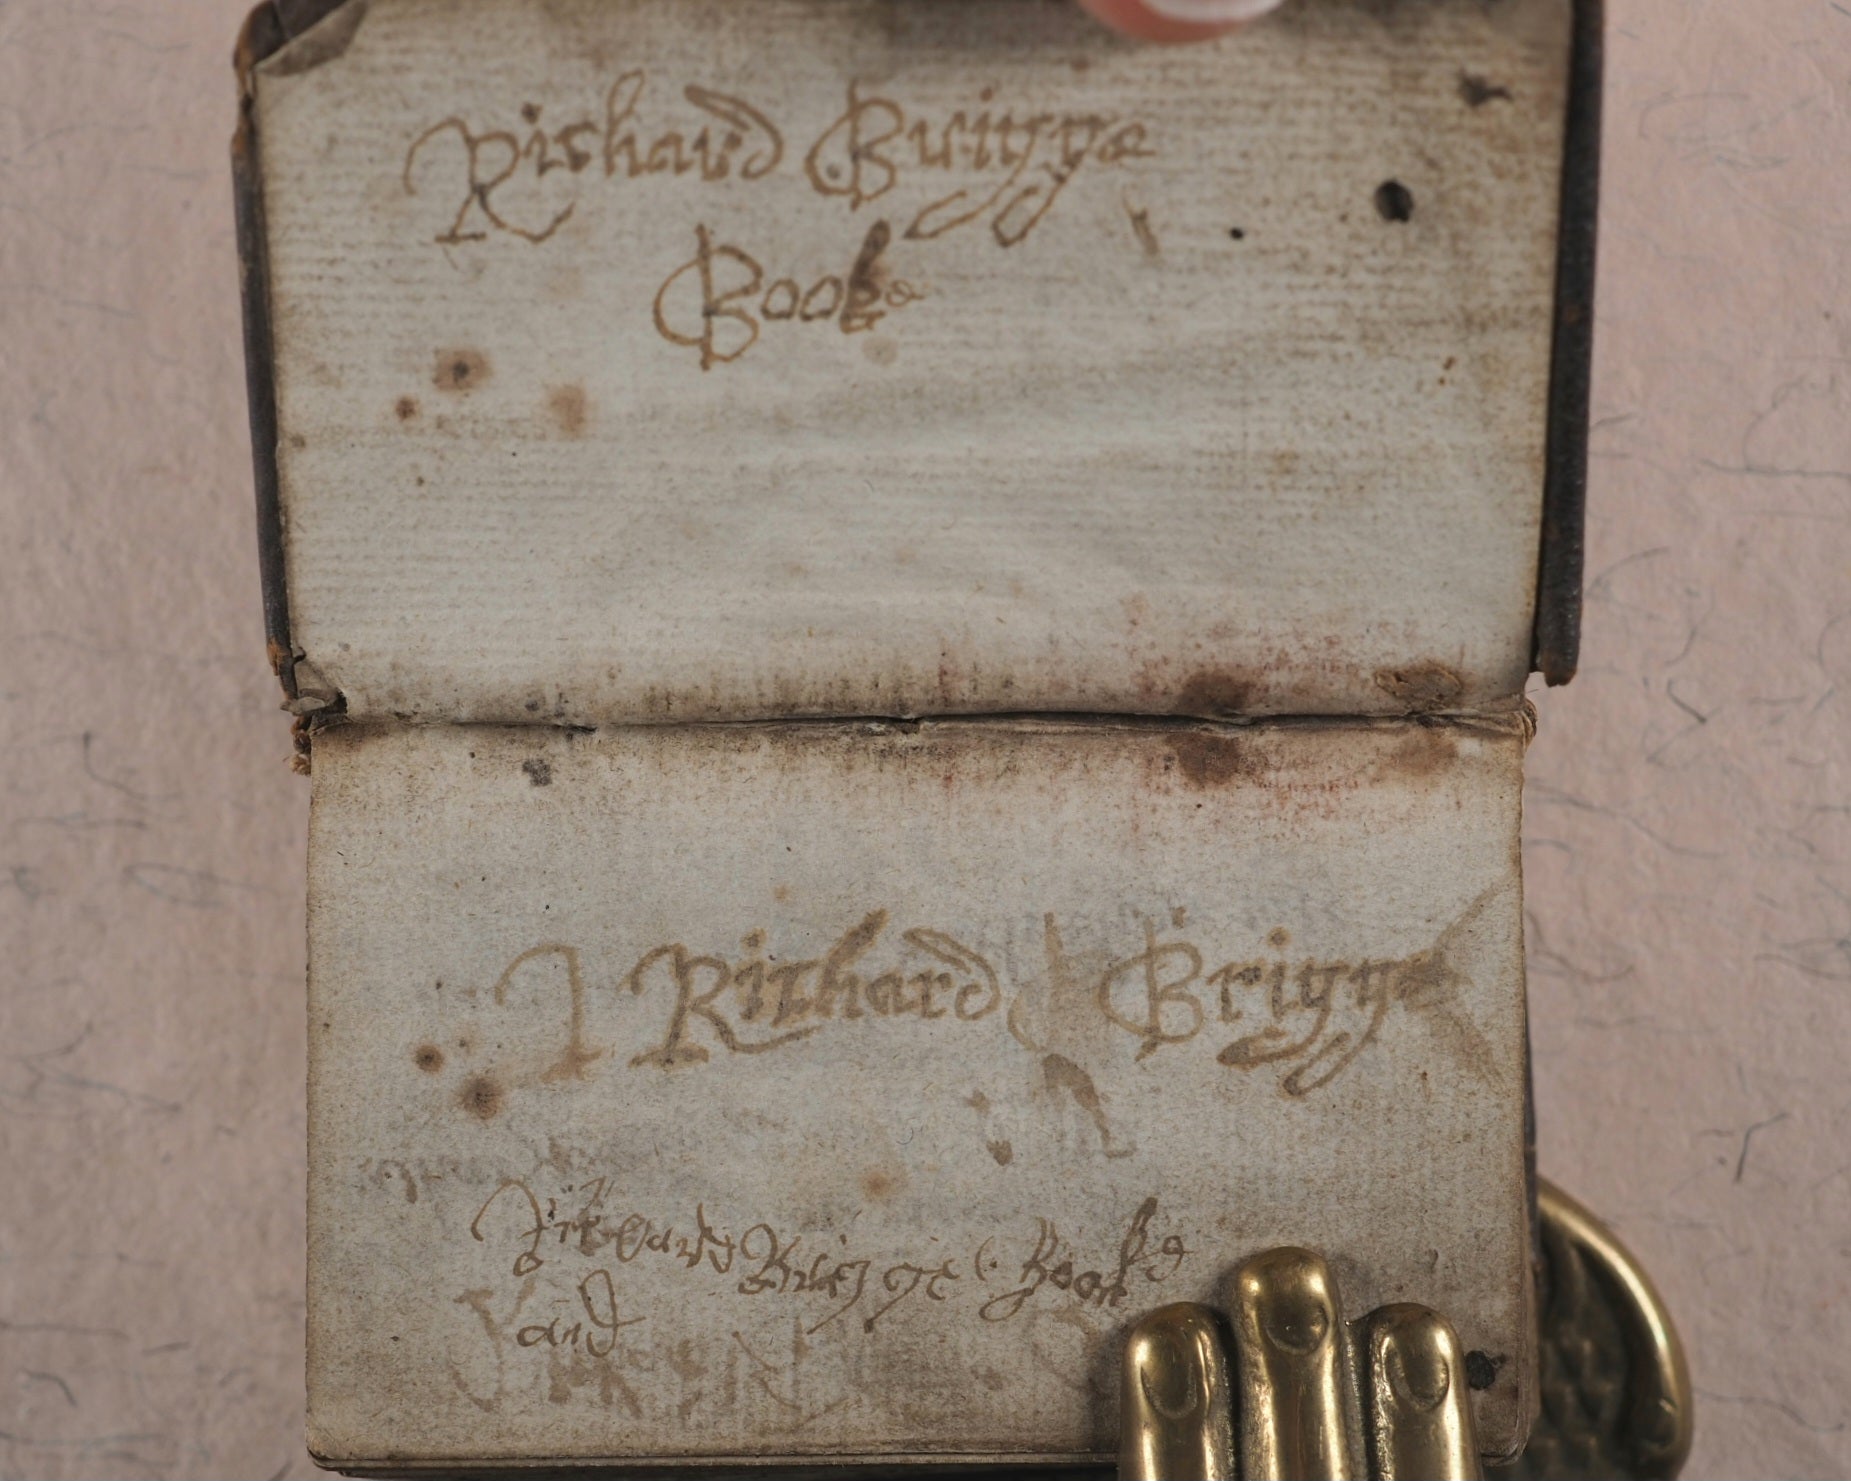 Richard Brigge
Booke
I Richard Brigge
Richard Brigge Booke
and